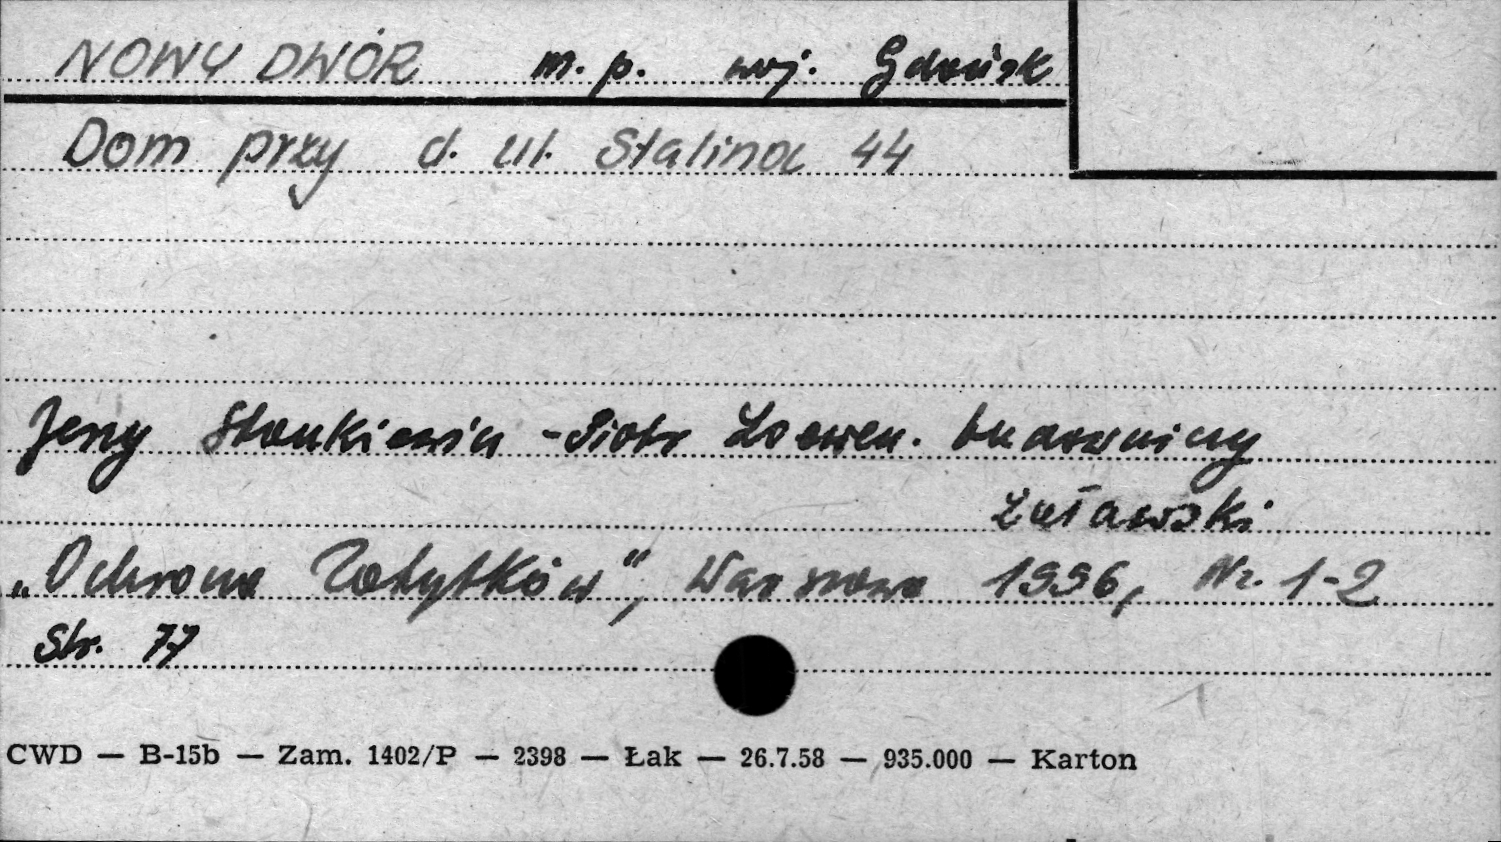 NOWY DWÓR m. p. woj. Gdańsk
Dom przy d. ul. Stalina 44
Jerzy Stankiewicz - Piotr Loewen. budowniczy
żuławski
„Ochrona Zabytków”, Warszawa 1956, Nr. 1-2
Str. 77
CWD — B-15b — Zam. 1402/P — 2398 — Łak — 26.7.58 — 935.000 — Karton